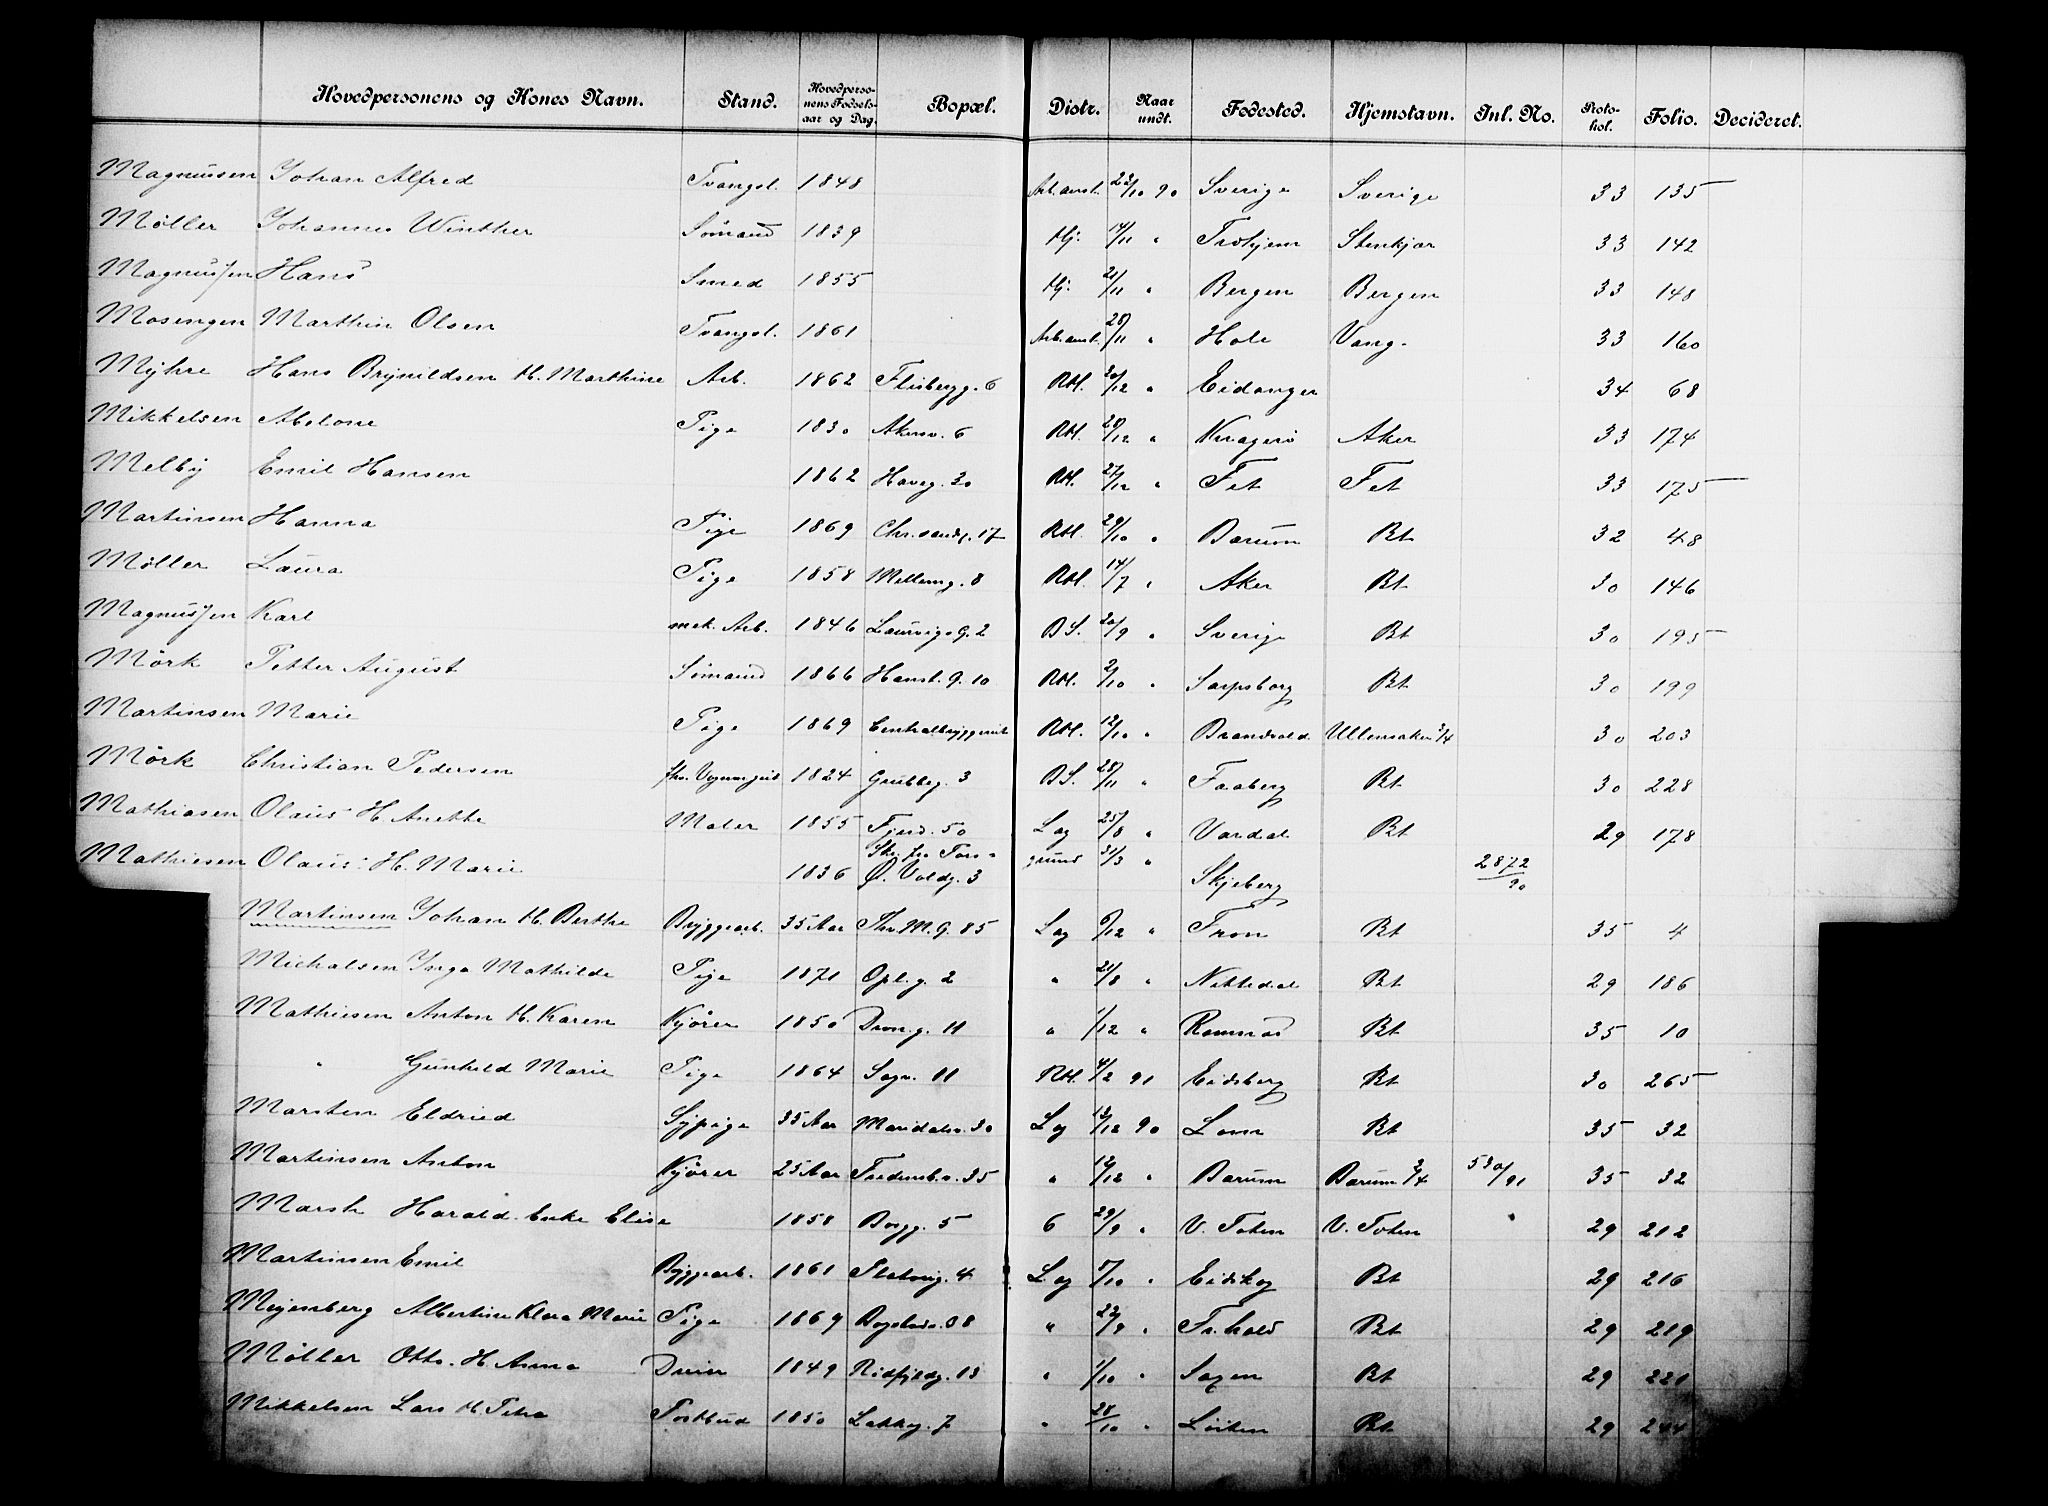 Hovedpersonens og Kones Navn. Stand. Hovedpersonens Fødselsaar og Dag. Bopæl. Distr. Naar undt. Fødested. Hjemstavn. Inl. No. Protokol. Folio. Decideret.
Magnussen Johan Alfred Tvangsl. 1848 Arb.anst. 23/10 90 Sverige Sverige 33 135
Møller Johannes Winther Sømand 1839 Hj. 14/11 " Trohjem Stenkjær 33 142
Magnussen Hans Smed 1855 Hj. 21/11 " Bergen Bergen 33 148
Mosengen Marthin Olsen Tvangsl. 1861 Arb.anst. 28/11 " Hole Vang. 33 160
Myhre Hans Brynildsen H. Marthine Arb. 1862 Flisbergg. 6 RH. 20/12 " Eidanger 34 68
Mikkelsen Abelone Pige 1830 Akersv. 6 RH. 28/12 " Kragerø Aker 33 174
Melby Emil Hansen 1862 Haveg. 30 RH. 27/12 " Fet Fet 33 175
Martinsen Hanna Pige 1869 Chr.sandg. 17 RH. 29/10 " Bærum Bt 32 48
Møller Laura Pige 1858 Mellemg. 8 RH. 14/7 " Aker Bt 30 146
Magnussen Karl mek. Arb. 1846 Laurvigs G. 2 BS. 20/9 " Sverige Bt 30 195
Mörk Petter August Sømand 1866 Hanst. G. 10 RH. 2/10 " Sarpsborg Bt 30 199
Martinsen Marie Pige 1869 Centralbryggeriet RH. 12/10 " Brandvold Ullensaker 3/4 30 203
Mörk Christian Pedersen fhv. Vognmand 1824 Grubbeg. 3 BS. 28/11 " Faaberg Bt 30 228
Mathiasen Olaus H. Anette Maler 1855 Fjerd. 50 Lag 25/8 " Vardal Bt 29 178
Mathiesen Olaus H. Marie 1836 Ø. Voldg. 3 grund 31/3 " Skjeberg 2872/90
Martinsen Johan H. Berthe Byggearb. 35 Aar Thv. M. G. 85 Lag 9/12 " Fron Bt 35 4
Michalsen Inga Mathilde Pige 1871 Opl.g. 2 " 21/8 " Nittedal Bt 29 186
Mathiesen Anton H. Karen Kjører 1850 Dron.g. 11 " 1/12 " Ramnæs Bt 35 10
" Gunhild Marie Pige 1864 Sagv. 11 RH. 4/2 91 Eidsberg Bt 30 265
Marsten Eldried Sypige 35 Aar Maridalsv. 30 Lag 13/12 90 Lom Bt 35 32
Martinsen Anton Kjører 25 Aar Fredensb.v. 35 " 12/12 " Bærum Bærum 3/4 530/91 35 32
Marsh Harald. Enke Elise 1858 Bergg. 5 6 29/9 " V. Toten V. Toten 29 212
Martinsen Emil Byggearb. 1861 Platousg. 4 Lag 7/10 " Eidskog Bt 29 216
Mejemberg Albertine Klara Marie Pige 1869 Bogstadv. 38 " 22/9 " Fr.hald Bt 29 219
Møller Otto. H. Anna Dreier 1849 Rødfyldg. 13 " 1/10 " Sagen Bt 29 221
Mikkelsen Lars H. Petra Postbud 1850 Lakkeg. 7 " 28/10 " Løiten Bt 29 244